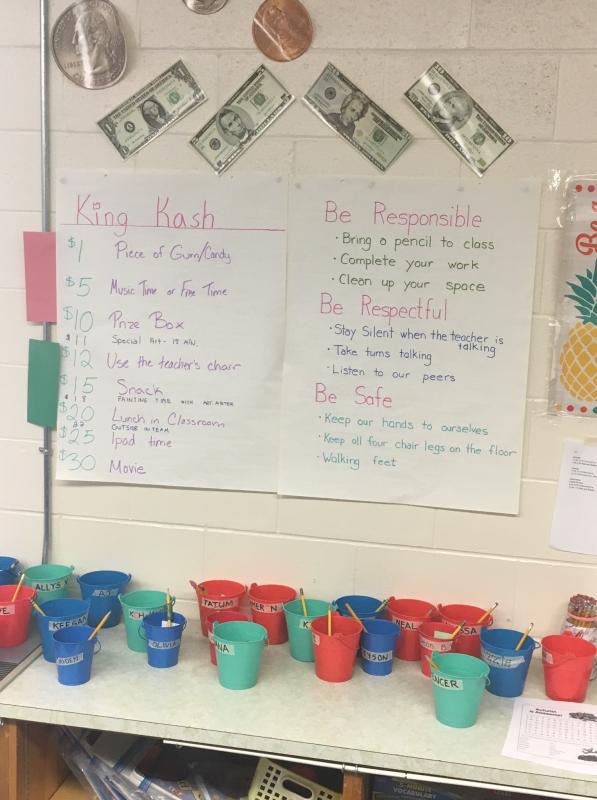 King Kash
$1 Piece of Gum/Candy
$5 Music Time or Free Time
$10 Prize Box
$11 Special Art - 15 min.
$12 Use the teacher's chair
$15 Snack
$18 PAINTING TIME WITH ART
$20 Lunch in Classroom
$22 OUTSIDE W/TEAM
$25 Ipad time
$30 Movie
Be Responsible
· Bring a pencil to class
· Complete your work
· Clean up your space
Be Respectful
· Stay Silent when the teacher is
talking
· Take turns talking
· Listen to our peers
Be Safe
· Keep our hands to ourselves
· Keep all four chair legs on the floor
· Walking feet
Be
ALLYS
AJ
KEEGAN
TATUM
MER N
NEAL
SSA
OLIVIA
ANA
YSON
AIDEN
NCER
VOCABULARY